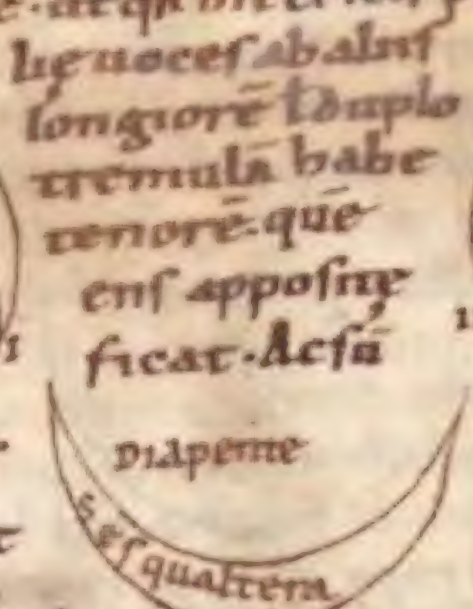 lię uoceſ ab aliiſ
longiorē ł duplo
tremulā habe
tenorē. quē
enſ appoſitę
ficat. Ac ſū
DIApente
ſeſqualtera